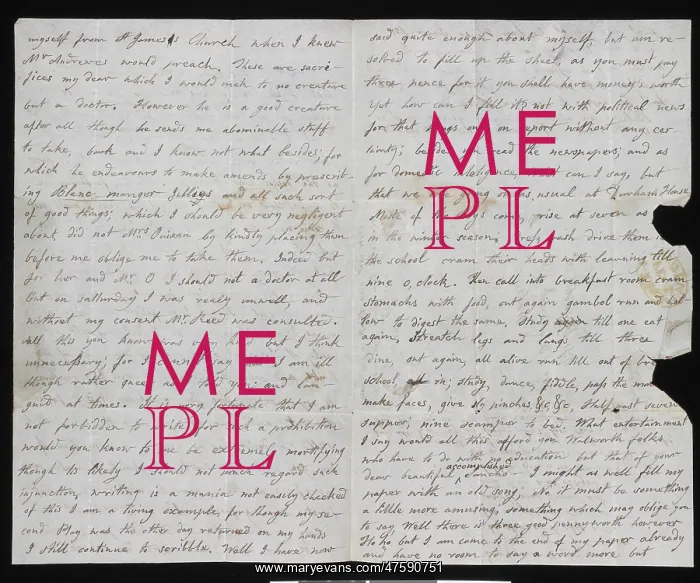 myself from St James's Church when I knew
Mr Andrewes would preach. These are sacri-
fices my dear which I would mak to no creature
but a doctor. However he is a good creature
after all though he sends me abominable stuff
to take, bark and I know not what besides; for
which he endeavours to make amends by prescrib
ing Blanc manger Jelleys and all such sort
of good things; which I should be very negligent
about did not Mrs by kindly placing them
before me oblige me to take them. Indeed but
for her and Mr O I should not a doctor at all
but on satturday I was realy unwell, and
without my consent Mr Reed was consulted.
All this you know was very but I think
unnecessary; for I cannot say that I am ill
though rather queer as I told you; and am
at times. It is very fortunate that I am
not forbidden to write for such a prohibition
would you know to me be extremely mortifying
though tis likely I should not much regard such
injunction, writing is a mania not easily checked
of this I am a living example, for though my se-
cond Play was the other day returned on my hands
I still continue to scribble. Well I have now
said quite enough about myself, but am re-
solved to fill up the sheet, as you must pay
three pence for it you shall have money's worth
Yet how can I fill it? not with political news
for that hangs on report without any cer
tainty; besides read the newspapers; and as
for domestic inteligence, what can I say, but
that we are going on as usual at Durham House
of the boys come, rise at seven as
in the winter season; drive them in
the school cram their heads with learning till
nine o, clock. Then call into breakfast room cram
stomachs with food, out again gambol run and hal-
low to digest the same. Study again till one eat
again, Streatch legs and lungs till three
dine, out again, all alive run till out of
school, all in, study, dance, fiddle, pass the
make faces, give sly pinches, &c &c, Half past seven
supper; nine scamper to bed. What entertainment
I say would all this afford you Walworth folks
who have to do with no education but that of your
dear beautiful accomplished. I might as well fill my
paper with an old song, No it must be something
a little more amusing, something which may oblige you
to say Well there is three good pennyworth however
Ho ho but I am come to the end of my paper already
and have no room to say a word more but
ME
PL
ME
PL
www.maryevans.com/47590751